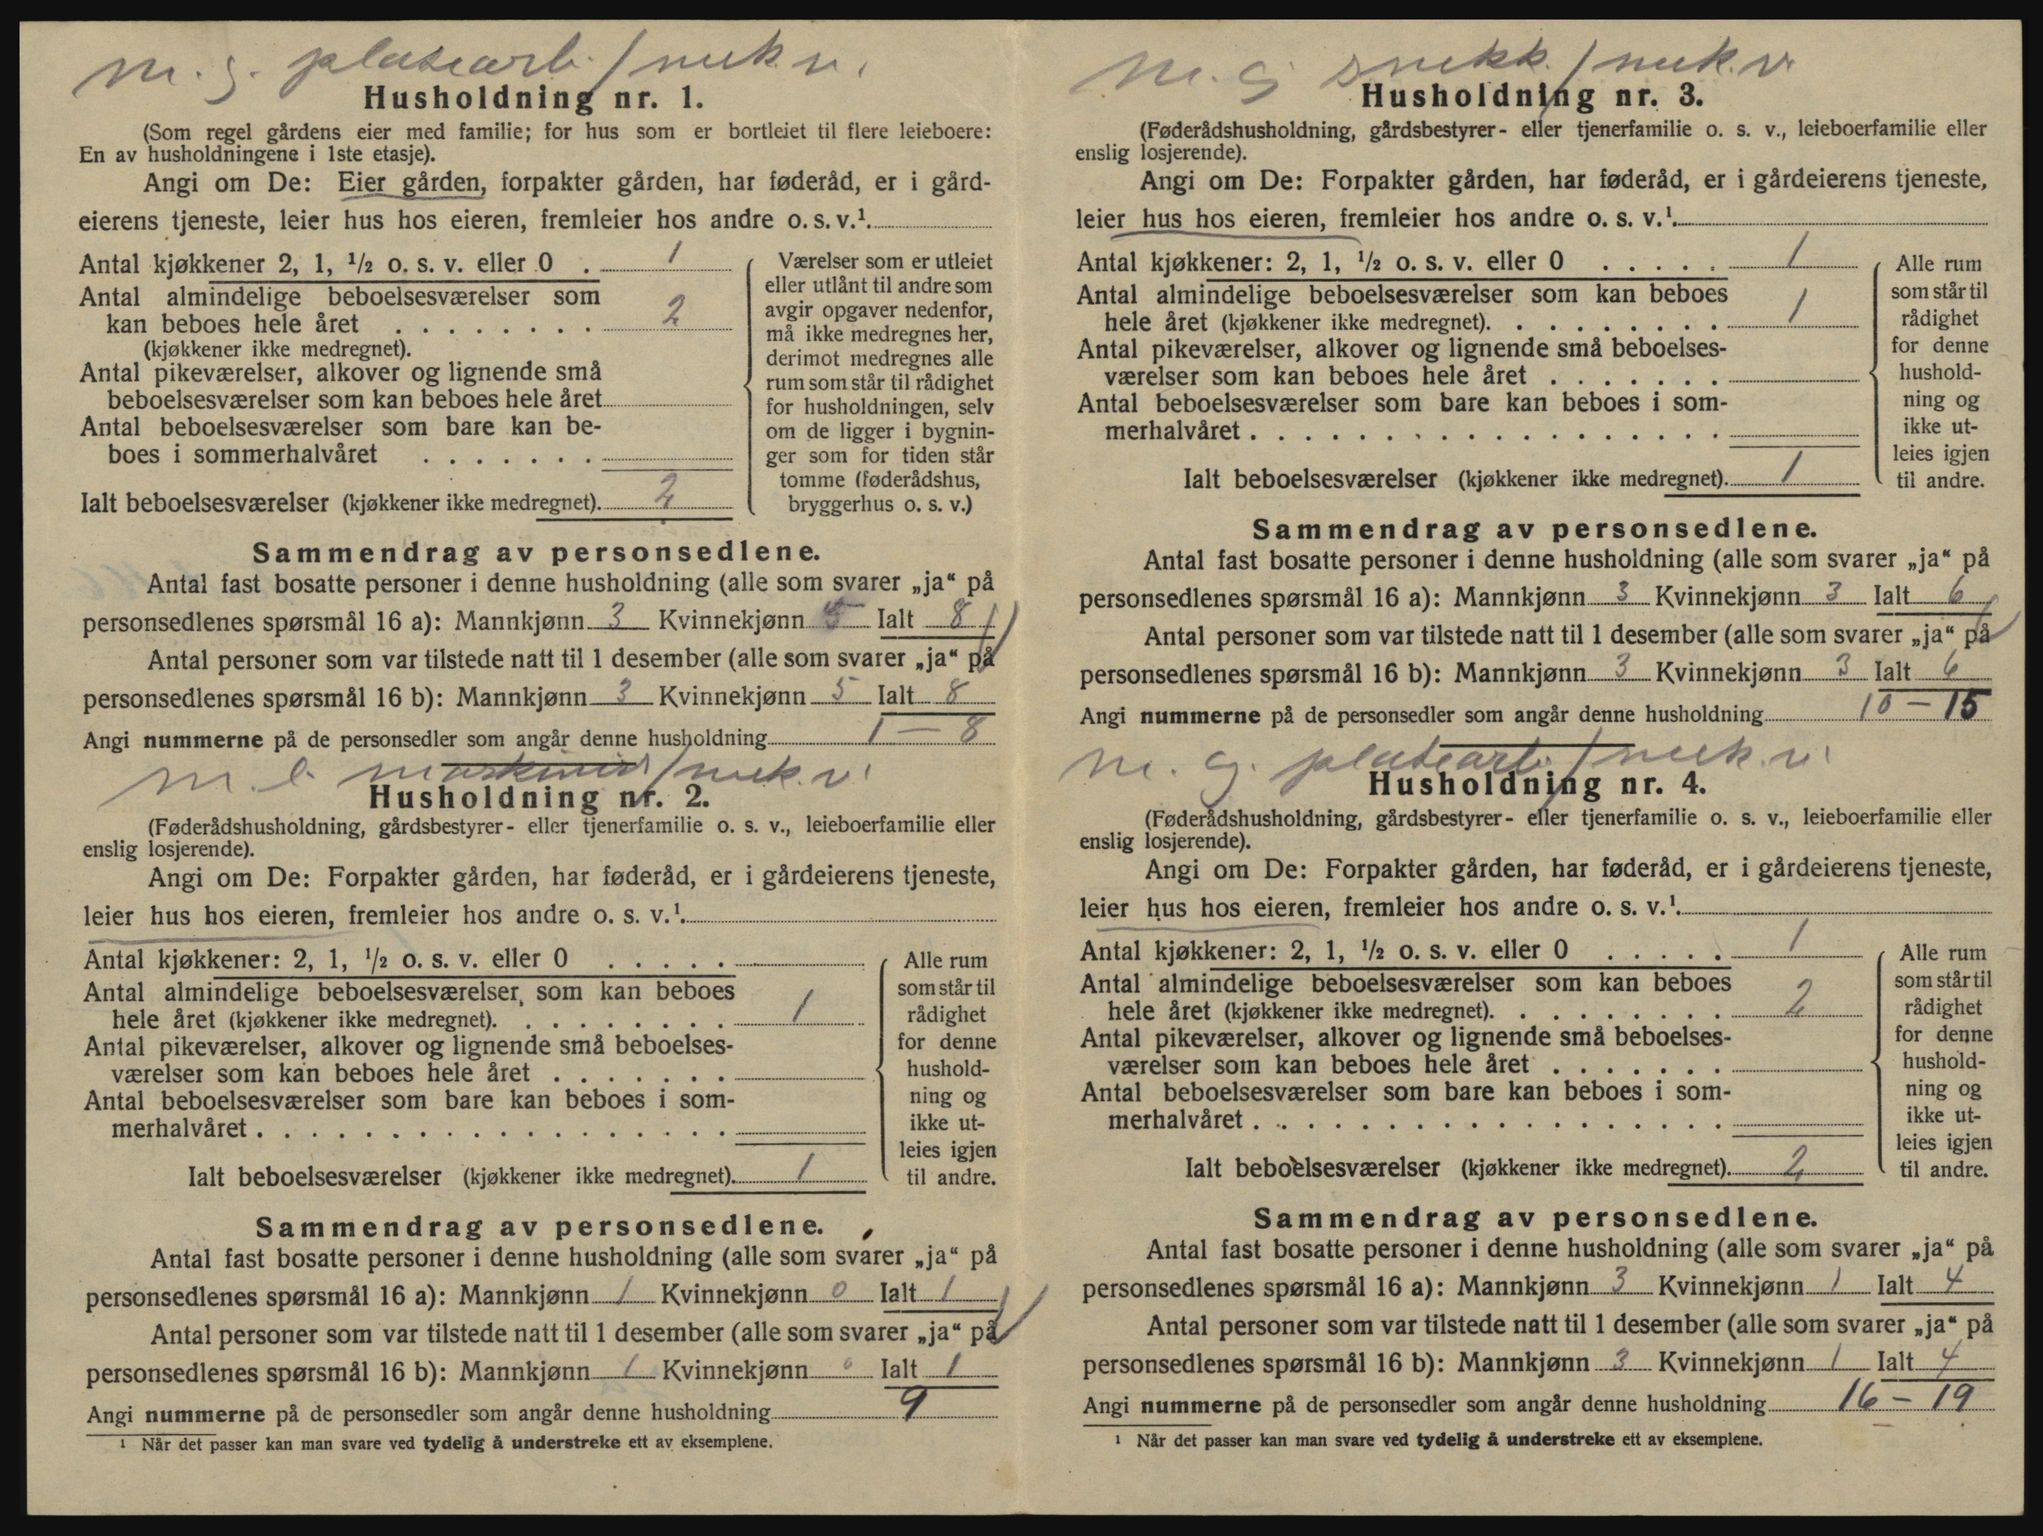 m. g. platearb. / mek. v.
Husholdning nr. 1.
(Som regel gårdens eier med familie; for hus som er bortleiet til flere leieboere:
En av husholdningene i 1ste etasje).
Angi om De: Eier gården, forpakter gården, har føderåd, er i gård-
eierens tjeneste, leier hus hos eieren, fremleier hos andre o. s. v.¹.
Antal kjøkkener 2, 1, ½ o. s. v. eller 0 . 1
Antal almindelige beboelsesværelser som
kan beboes hele året . . . . . . . . 2
(kjøkkener ikke medregnet).
Antal pikeværelser, alkover og lignende små
beboelsesværelser som kan beboes hele året
Antal beboelsesværelser som bare kan be-
boes i sommerhalvåret . . . . . . .
Ialt beboelsesværelser (kjøkkener ikke medregnet). 2
Værelser som er utleiet
eller utlånt til andre som
avgir opgaver nedenfor,
må ikke medregnes her,
derimot medregnes alle
rum som står til rådighet
for husholdningen, selv
om de ligger i bygnin-
ger som for tiden står
tomme (føderådshus,
bryggerhus o. s. v.)
Sammendrag av personsedlene.
Antal fast bosatte personer i denne husholdning (alle som svarer „ja“ på
personsedlenes spørsmål 16 a): Mannkjønn 3 Kvinnekjønn 5 Ialt 8
Antal personer som var tilstede natt til 1 desember (alle som svarer „ja“ på
personsedlenes spørsmål 16 b): Mannkjønn 3 Kvinnekjønn 5 Ialt 8
Angi nummerne på de personsedler som angår denne husholdning 1 — 8
/ mek. v.
Husholdning nr. 2.
(Føderådshusholdning, gårdsbestyrer- eller tjenerfamilie o. s. v., leieboerfamilie eller
enslig losjerende).
Angi om De: Forpakter gården, har føderåd, er i gårdeierens tjeneste,
leier hus hos eieren, fremleier hos andre o. s. v.¹.
Antal kjøkkener: 2, 1, ½ o. s. v. eller 0 . . . . .
Antal almindelige beboelsesværelser som kan beboes
hele året (kjøkkener ikke medregnet). . . . . . . . . 1
Antal pikeværelser, alkover og lignende små beboelses-
værelser som kan beboes hele året . . . . . . .
Antal beboelsesværelser som bare kan beboes i som-
merhalvåret . . . . . . . . . . . . . . . . . .
Ialt beboelsesværelser (kjøkkener ikke medregnet). 1
Alle rum
som står til
rådighet
for denne
hushold-
ning og
ikke ut-
leies igjen
til andre.
Sammendrag av personsedlene.
Antal fast bosatte personer i denne husholdning (alle som svarer „ja“ på
personsedlenes spørsmål 16 a): Mannkjønn 1 Kvinnekjønn 0 Ialt 1
Antal personer som var tilstede natt til 1 desember (alle som svarer „ja“ på
personsedlenes spørsmål 16 b): Mannkjønn 1 Kvinnekjønn 0 Ialt 1
Angi nummerne på de personsedler som angår denne husholdning 9
¹ Når det passer kan man svare ved tydelig å understreke ett av eksemplene.
m. g. snekk. / mek. v.
Husholdning nr. 3.
(Føderådshusholdning, gårdsbestyrer- eller tjenerfamilie o. s. v., leieboerfamilie eller
enslig losjerende).
Angi om De: Forpakter gården, har føderåd, er i gårdeierens tjeneste,
leier hus hos eieren, fremleier hos andre o. s. v.¹.
Antal kjøkkener: 2, 1, ½ o. s. v. eller 0 . . . . . 1
Antal almindelige beboelsesværelser som kan beboes
hele året (kjøkkener ikke medregnet). . . . . . . . . 1
Antal pikeværelser, alkover og lignende små beboelses-
værelser som kan beboes hele året . . . . . . .
Antal beboelsesværelser som bare kan beboes i som-
merhalvåret . . . . . . . . . . . . . . . . . .
Ialt beboelsesværelser (kjøkkener ikke medregnet). 1
Alle rum
som står til
rådighet
for denne
hushold-
ning og
ikke ut-
leies igjen
til andre.
Sammendrag av personsedlene.
Antal fast bosatte personer i denne husholdning (alle som svarer „ja“ på
personsedlenes spørsmål 16 a): Mannkjønn 3 Kvinnekjønn 3 Ialt 6
Antal personer som var tilstede natt til 1 desember (alle som svarer „ja“ på
personsedlenes spørsmål 16 b): Mannkjønn 3 Kvinnekjønn 3 Ialt 6
Angi nummerne på de personsedler som angår denne husholdning 10 — 15
m. g. platearb. / mek. v.
Husholdning nr. 4.
(Føderådshusholdning, gårdsbestyrer- eller tjenerfamilie o. s. v., leieboerfamilie eller
enslig losjerende).
Angi om De: Forpakter gården, har føderåd, er i gårdeierens tjeneste,
leier hus hos eieren, fremleier hos andre o. s. v.¹.
Antal kjøkkener: 2, 1, ½ o. s. v. eller 0 . . . . . 1
Antal almindelige beboelsesværelser som kan beboes
hele året (kjøkkener ikke medregnet). . . . . . . . . 2
Antal pikeværelser, alkover og lignende små beboelses-
værelser som kan beboes hele året . . . . . . .
Antal beboelsesværelser som bare kan beboes i som-
merhalvåret . . . . . . . . . . . . . . . . . .
Ialt beboelsesværelser (kjøkkener ikke medregnet). 2
Alle rum
som står til
rådighet
for denne
hushold-
ning og
ikke ut-
leies igjen
til andre.
Sammendrag av personsedlene.
Antal fast bosatte personer i denne husholdning (alle som svarer „ja“ på
personsedlenes spørsmål 16 a): Mannkjønn 3 Kvinnekjønn 1 Ialt 4
Antal personer som var tilstede natt til 1 desember (alle som svarer „ja“ på
personsedlenes spørsmål 16 b): Mannkjønn 3 Kvinnekjønn 1 Ialt 4
Angi nummerne på de personsedler som angår denne husholdning 16 — 19
¹ Når det passer kan man svare ved tydelig å understreke ett av eksemplene.